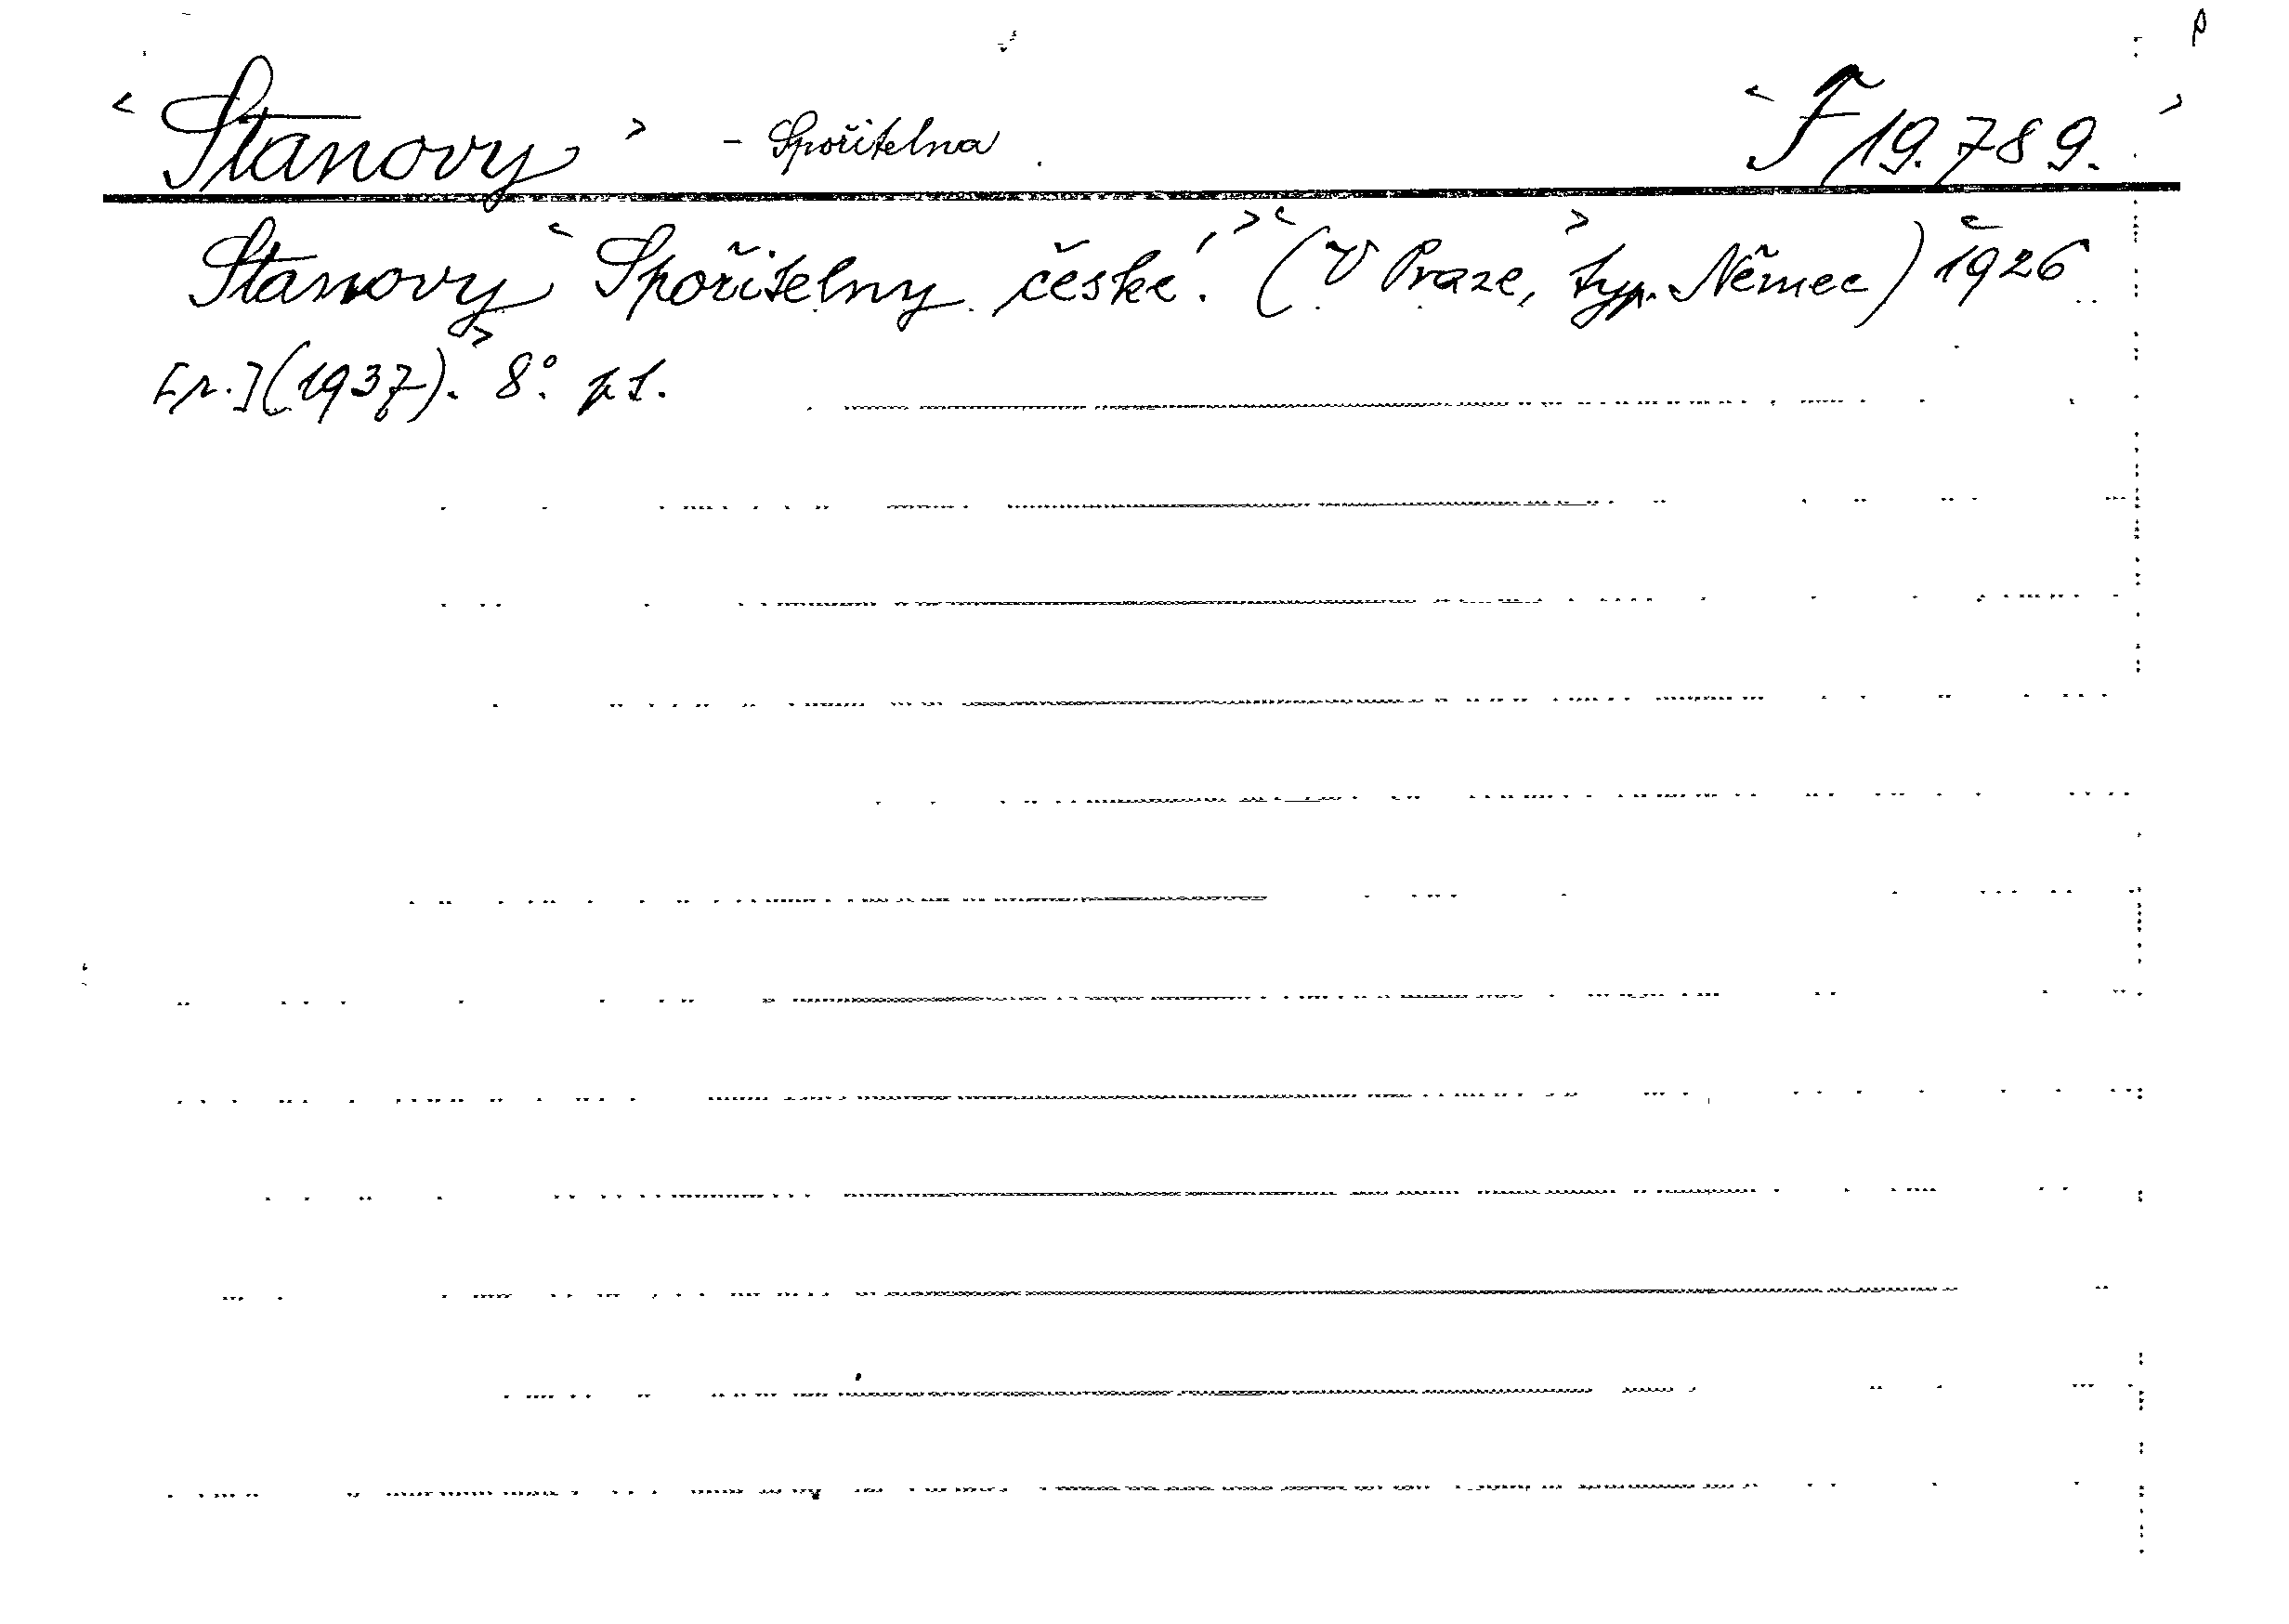 ‹Stanovy› - Spořitelna ‹F 19.789.›
Stanovy ‹Spořitelny české.› ‹(V Praze,› typ. Němec) ‹1926
[r.](1937).› 8°. pt.